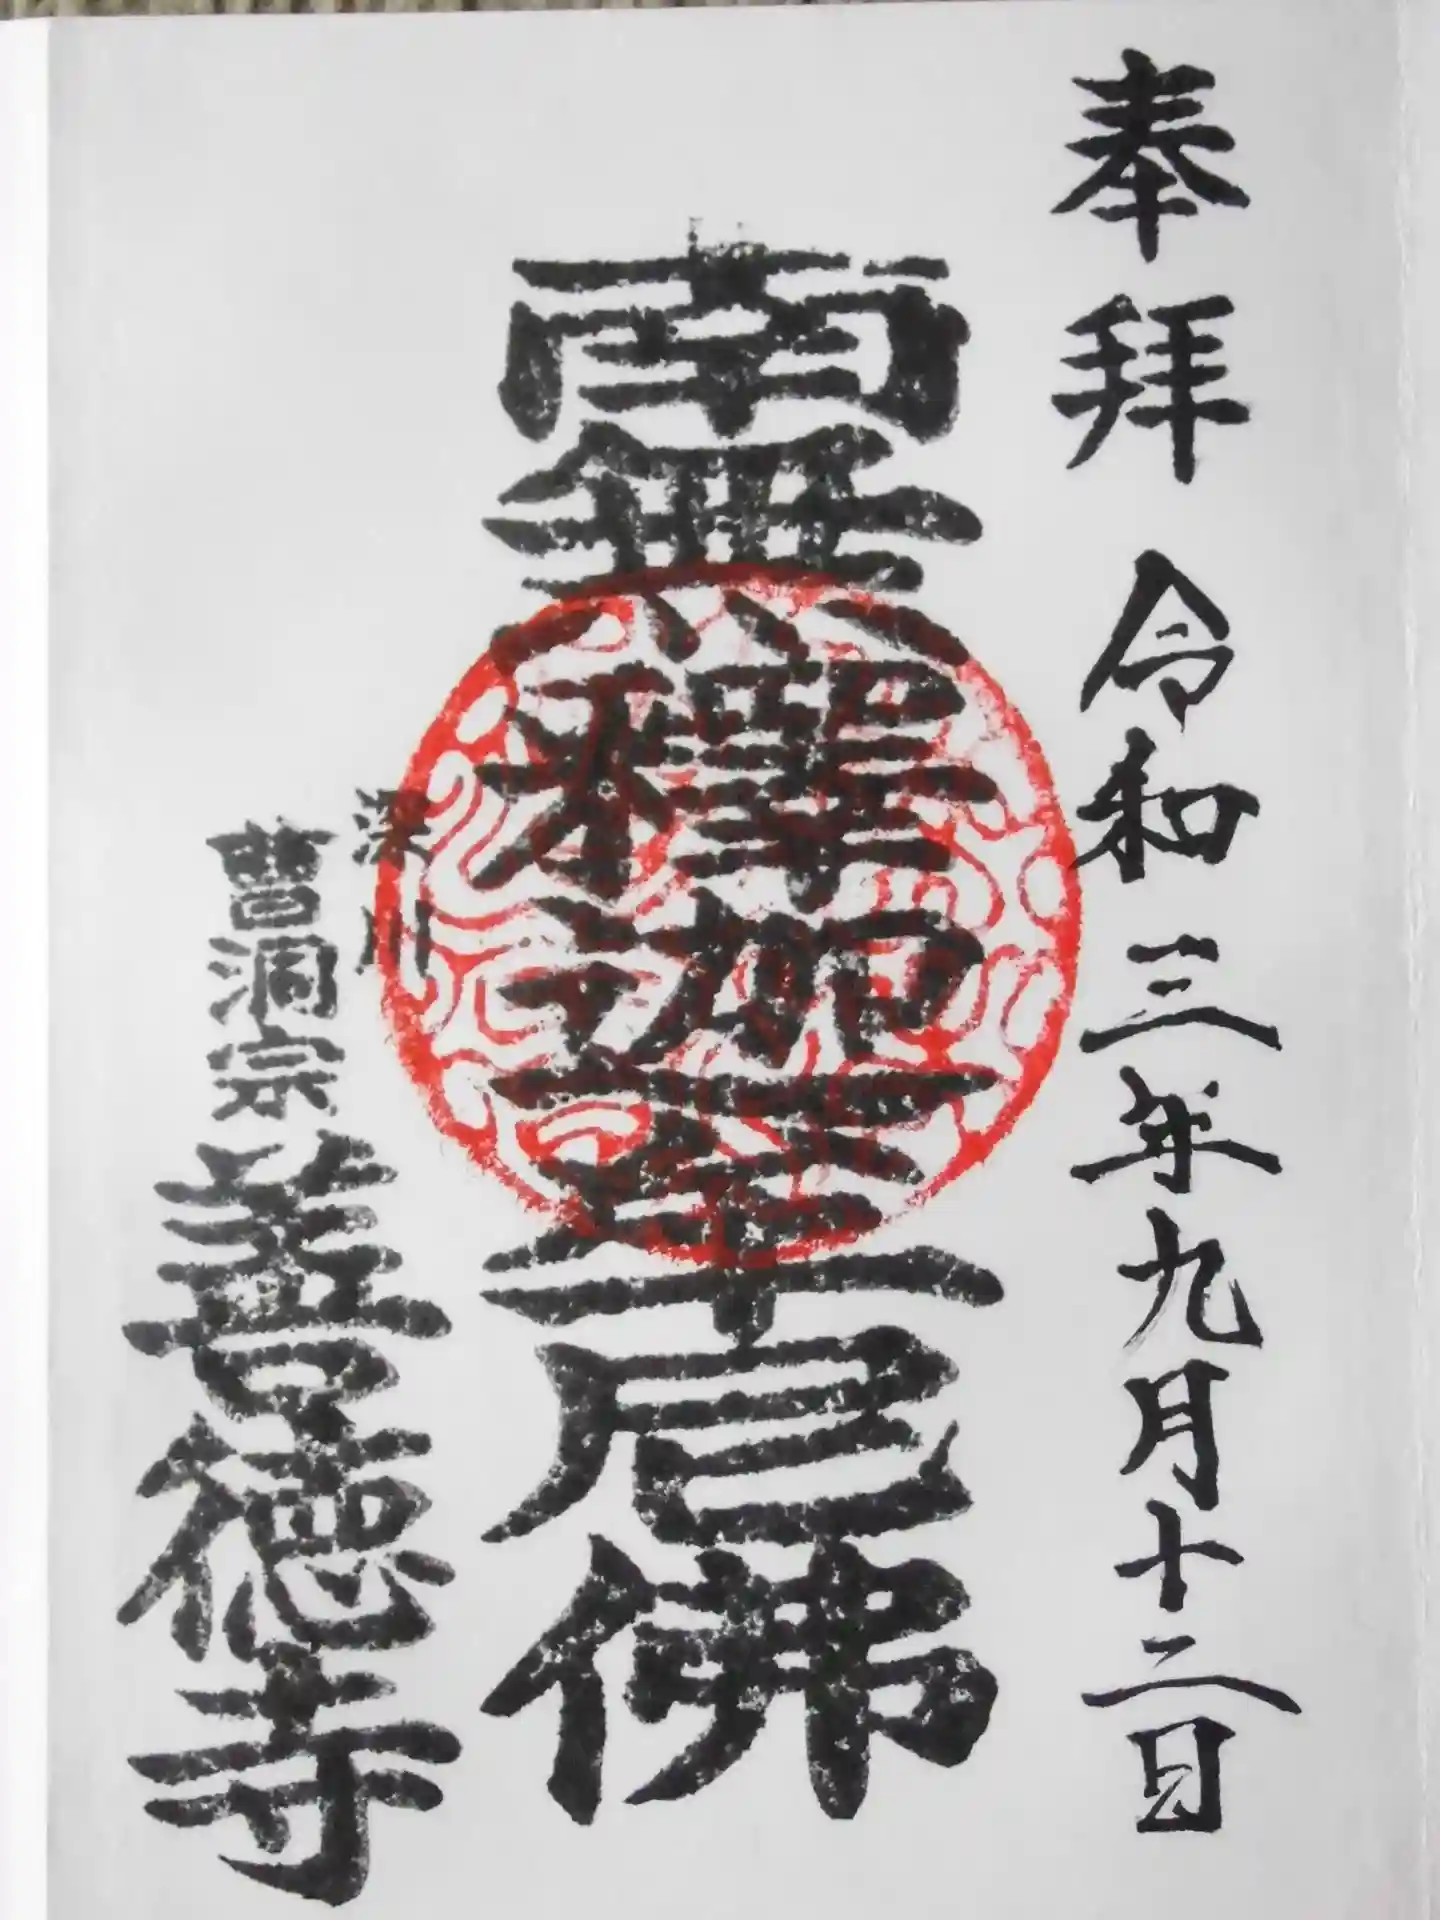 奉拜 令和三年九月十二日
南無釋迦牟尼佛
深川
曹洞宗 善德寺